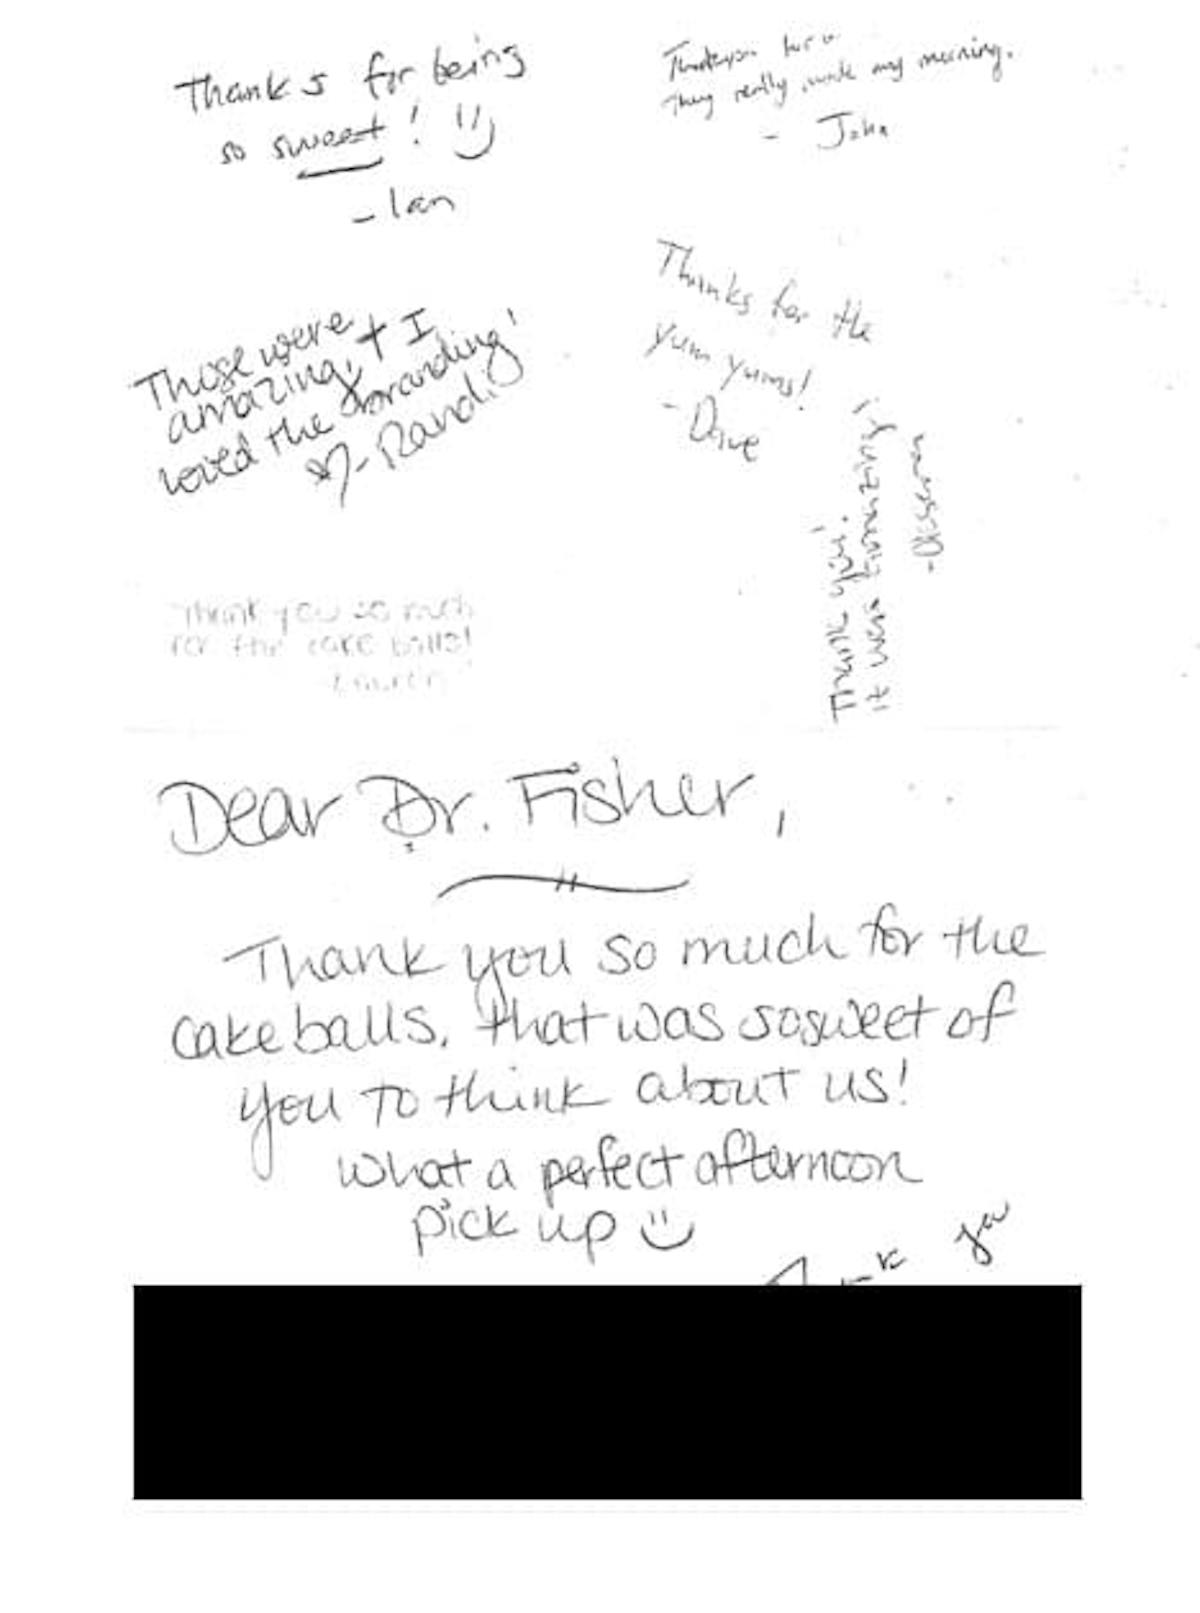 Thanks for being
so sweet!
- Ian
They really made my morning.
- John
Thanks for the
yum yums!
- Dave
Those were
amazing, + I
loved the branding!
- Randi
Thank you!
It was amazing!
Thank you so much
for the cake balls!
- Lauren
Dear Dr. Fisher,
Thank you so much for the
cake balls. That was so sweet of
you to think about us!
What a perfect afternoon
pick up